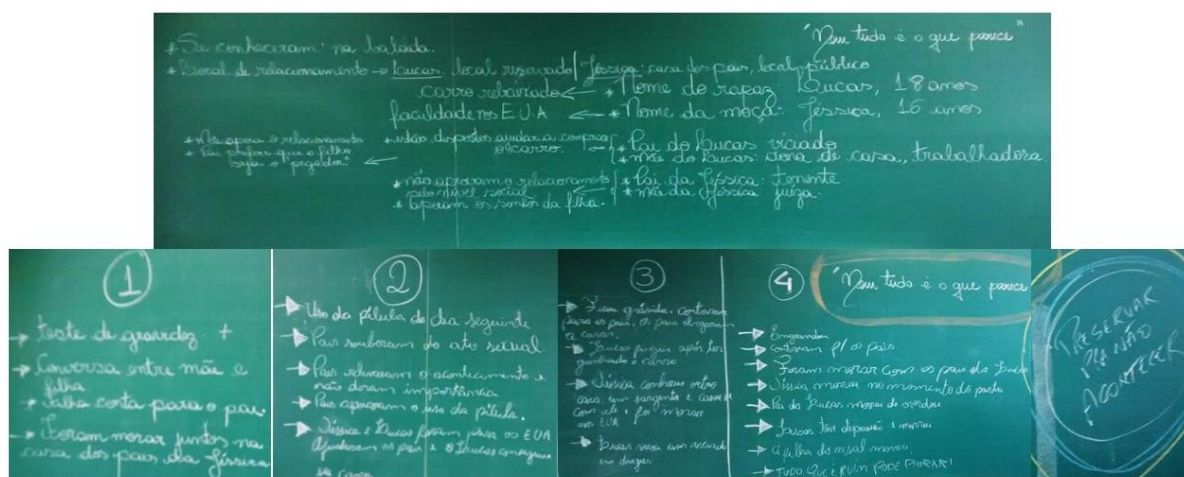 "Nem tudo é o que parece"
* Se conheceram: na balada.
* Local de relacionamento → Lucas: local reservado | Jéssica: casa dos pais, local público
carro rebaixado ← * Nome do rapaz Lucas, 18 anos
faculdade nos E.U.A ← * Nome da moça: Jéssica, 16 anos
* Não apoia o relacionamento
* Pai prefere que o filho seja o "pegador" ←
* estão dispostos ajudar a comprar o carro.
* Pai do Lucas viciado
* Mãe do Lucas: dona de casa, trabalhadora
* não aprovam o relacionamento pelo nível social
* apoiam os sonhos da filha.
* Pai da Jéssica: tenente
* mãe da Jéssica juíza.
1
→ teste de gravidez +
→ Conversa entre mãe e filha
→ filha conta para o pai
→ Foram morar juntos na casa dos pais da Jéssica
2
→ Uso da pílula do dia seguinte
→ Pais souberam do ato sexual
→ Pais relevaram o acontecimento e não deram importância
→ Pais apoiaram o uso da pílula.
→ Jéssica e Lucas foram para os EUA
os pais e o Lucas conseguiu
carro
3
→ Ficou grávida, contaram para os pais, os pais
a casar.
→ Lucas fugiu após ter ganhado o carro
→ Jéssica conheceu outro cara, um sargento e casou com ele e foi morar nos EUA
→ Lucas virou um viciado em drogas
4
"Nem tudo é o que parece
→ Engravidou
→ Contaram p/ os pais
→ Foram morar com os pais do Lucas
→ Jéssica morreu no momento do parto
→ Pai do Lucas morreu de overdose
→ Lucas teve depressão e morreu
→ A filha do casal morreu.
→ TUDO QUE É RUIM PODE PIORAR!
PRESERVAR
PRA NÃO
ACONTECER